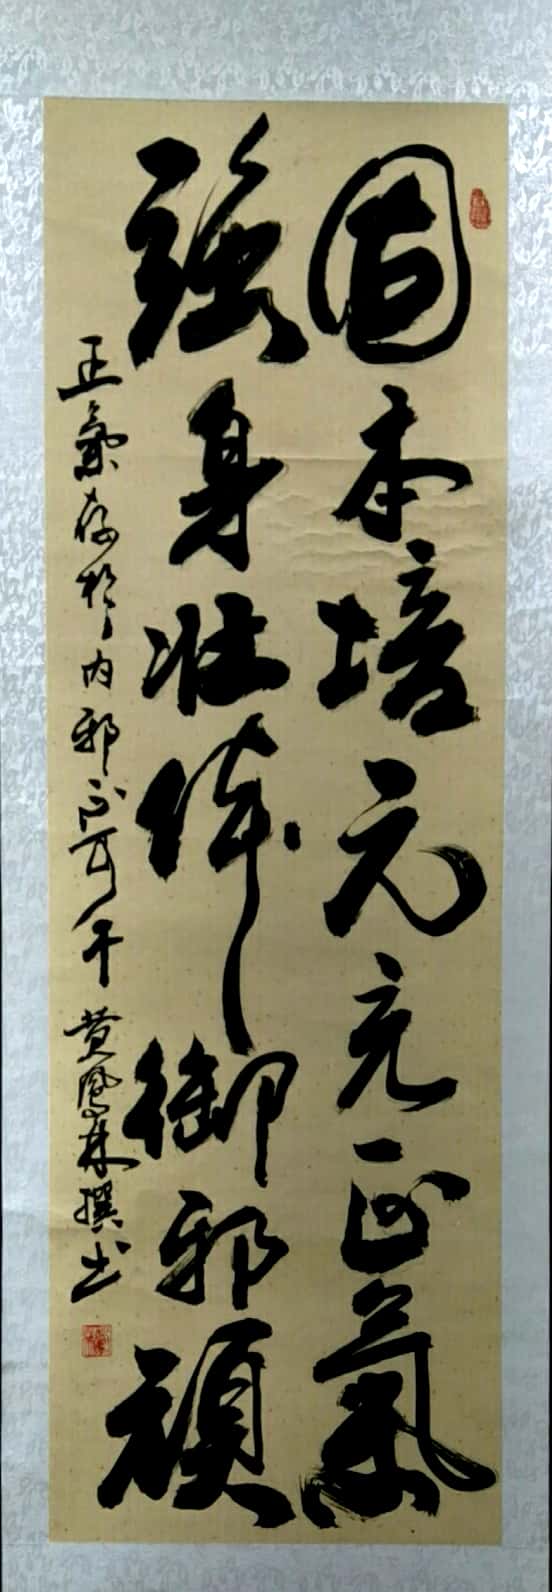 固本培元充正氣
強身壯体御邪頑
正氣存於内邪不可干 黄鳳林撰书